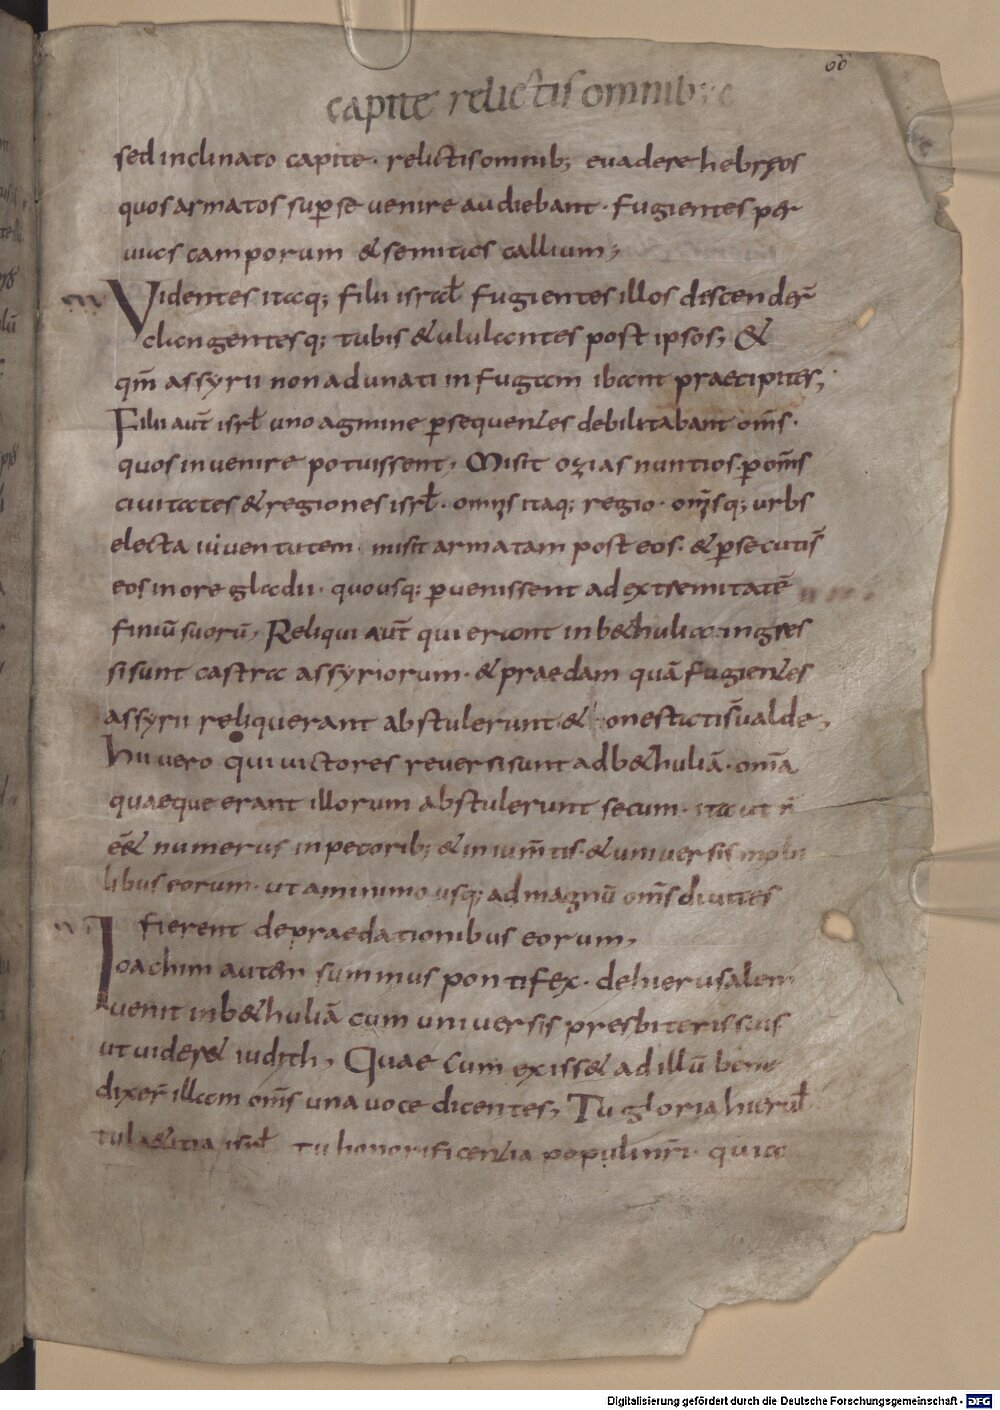 66
capite relictis omnib; e
sed inclinato capite · relictis omnib; euadere hebręos
quos armatos sup se uenire audiebant · fugientes per
uias camporum & semitas callium;
Videntes itaq; filii israhł fugientes illos discender̄
clangentesq; tubis & ululantes post ipsos; &
qm̄ assyrii non adunati in fugam ibant praecipites;
Filii aut̄ isrł uno agmine ꝑsequentes debilitabant om̄s ·
quos inuenire potuissent; Misit ozias nuntios ꝑ om̄s
ciuitates & regiones isrł · omnis itaq; regio · om̄isq; urbs
electa iuuentutem misit armatam post eos · & ꝑsecuti s̄
eos in ore gladii · quousq; ꝑuenissent ad extremitatē
finiū suorū; Reliqui aut̄ qui erant in b&hulia ingres
si sunt castra assyriorum · & praedam quā fugientes
assyrii reliquerant abstulerunt & onestati s̄ ualde;
hii uero qui uictores reuersi sunt ad b&huliā · om̄a
quaeque erant illorum abstulerunt secum · ita ut n̄
eē& numerus in pecorib; & in ium̄tis · & uniuersis mobi
libus eorum · ut a minimo usq; ad magnū om̄s diuites
fierent de praedationibus eorum;
Ioachim autem summus pontifex · de hierusalem
uenit in b&huliā cum uniuersis presbiteris suis
ut uider& iudith; Quae cum exiss& ad illū bene
dixer̄ illam om̄s una uoce dicentes; Tu gloria hierusł
tu la&itia isrł tu honorificentia populi nr̄i · quia
Digitalisierung gefördert durch die Deutsche Forschungsgemeinschaft - DFG